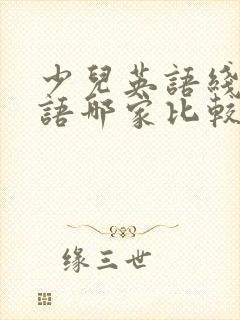 少兒英語綫
語哪家比較
缘三世